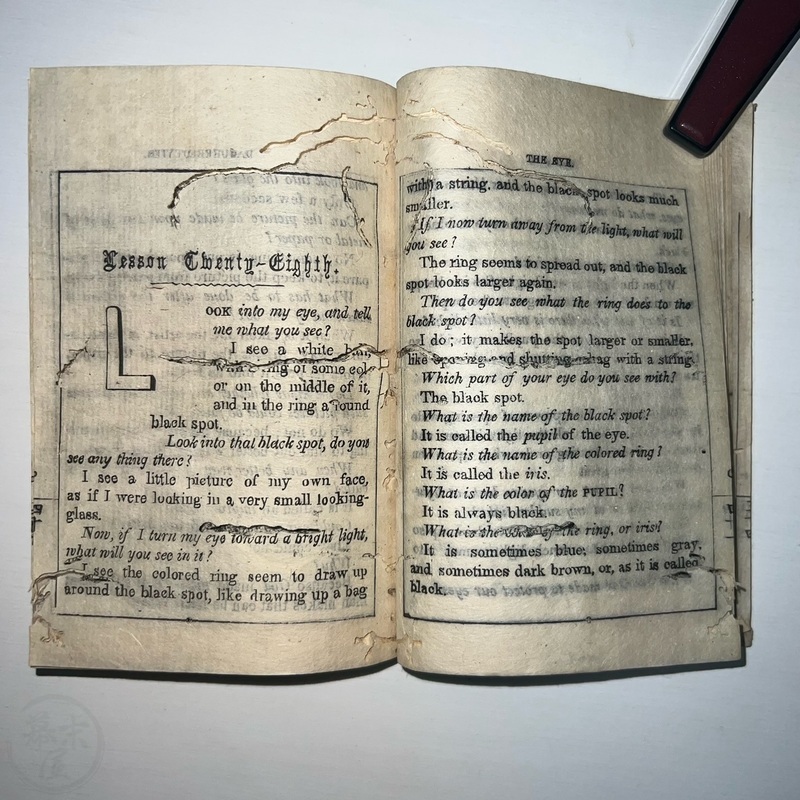 Lesson Twenty-Eighth.
LOOK into my eye, and tell
me what you see?
I see a white
ring of some col-
or on the middle of it,
and in the ring around
black spot.
Look into that black spot, do you
see any thing there?
I see a little picture of my own face,
as if I were looking in a very small looking-
glass.
Now, if I turn my eye toward a bright light,
what will you see in it?
I see the colored ring seem to draw up
around the black spot, like drawing up a bag
THE EYE.
with a string, and the black spot looks much
smaller.
If I now turn away from the light, what will
you see?
The ring seems to spread out, and the black
spot looks larger again.
Then do you see what the ring does to the
black spot?
I do; it makes the spot larger or smaller,
like opening and shutting a bag with a string.
Which part of your eye do you see with?
The black spot.
What is the name of the black spot?
It is called the pupil of the eye.
What is the name of the colored ring?
It is called the iris.
What is the color of the PUPIL?
It is always black.
What is the color of the ring, or iris?
It is sometimes blue; sometimes gray,
and sometimes dark brown, or, as it is called
black.